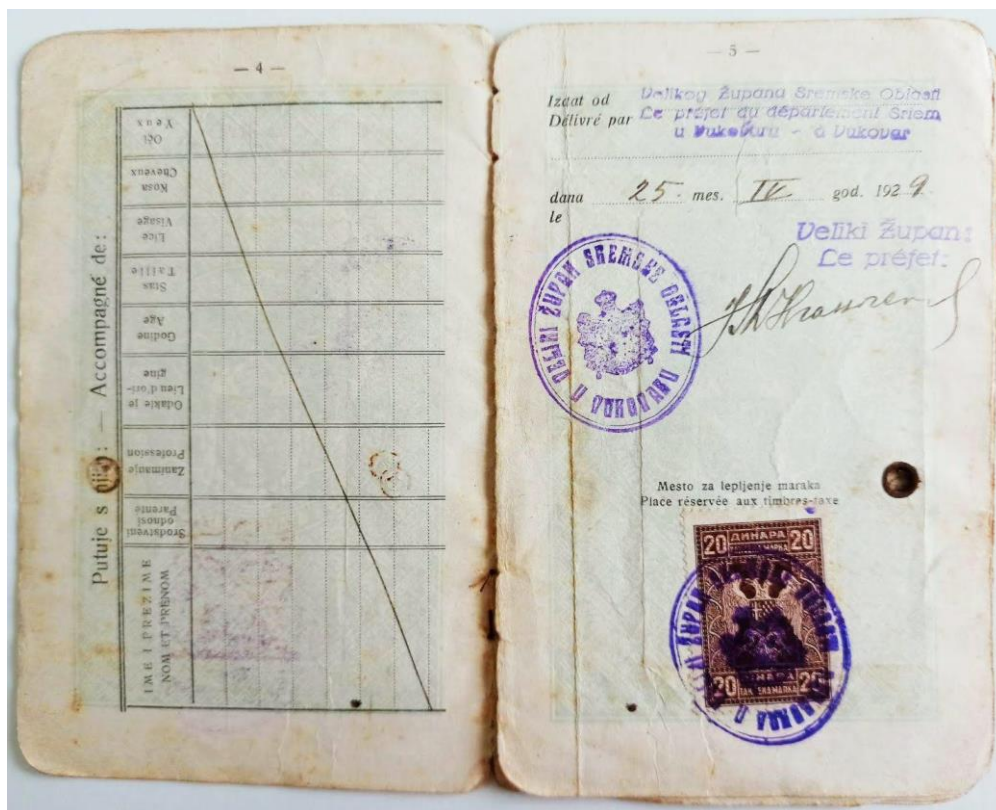 — 4 —
Putuje s : — Accompagné de:
IME I PREZIME
NOM ET PRÉNOM
Srodstveni
odnosi
Parenté
Zanimanje
Profession
Odakle je
Lieu d'ori-
gine
Godine
Age
Stas
Taille
Lice
Visage
Kosa
Cheveux
Oči
Yeux
— 5 —
Izdat od Velikog Župana Sremske Oblasti
Délivré par Le préfet du département Sriem
u Vukovaru - à Vukovar
dana 25. mes. IV. god. 1929.
le
Veliki Župan:
Le préfet:
VELIKI ŽUPAN SREMSKE OBLASTI
Mesto za lepljenje maraka
Place réservée aux timbres-taxe
20 ДИНАРА 20
МАРКА
20 DINARA 20
MARKA